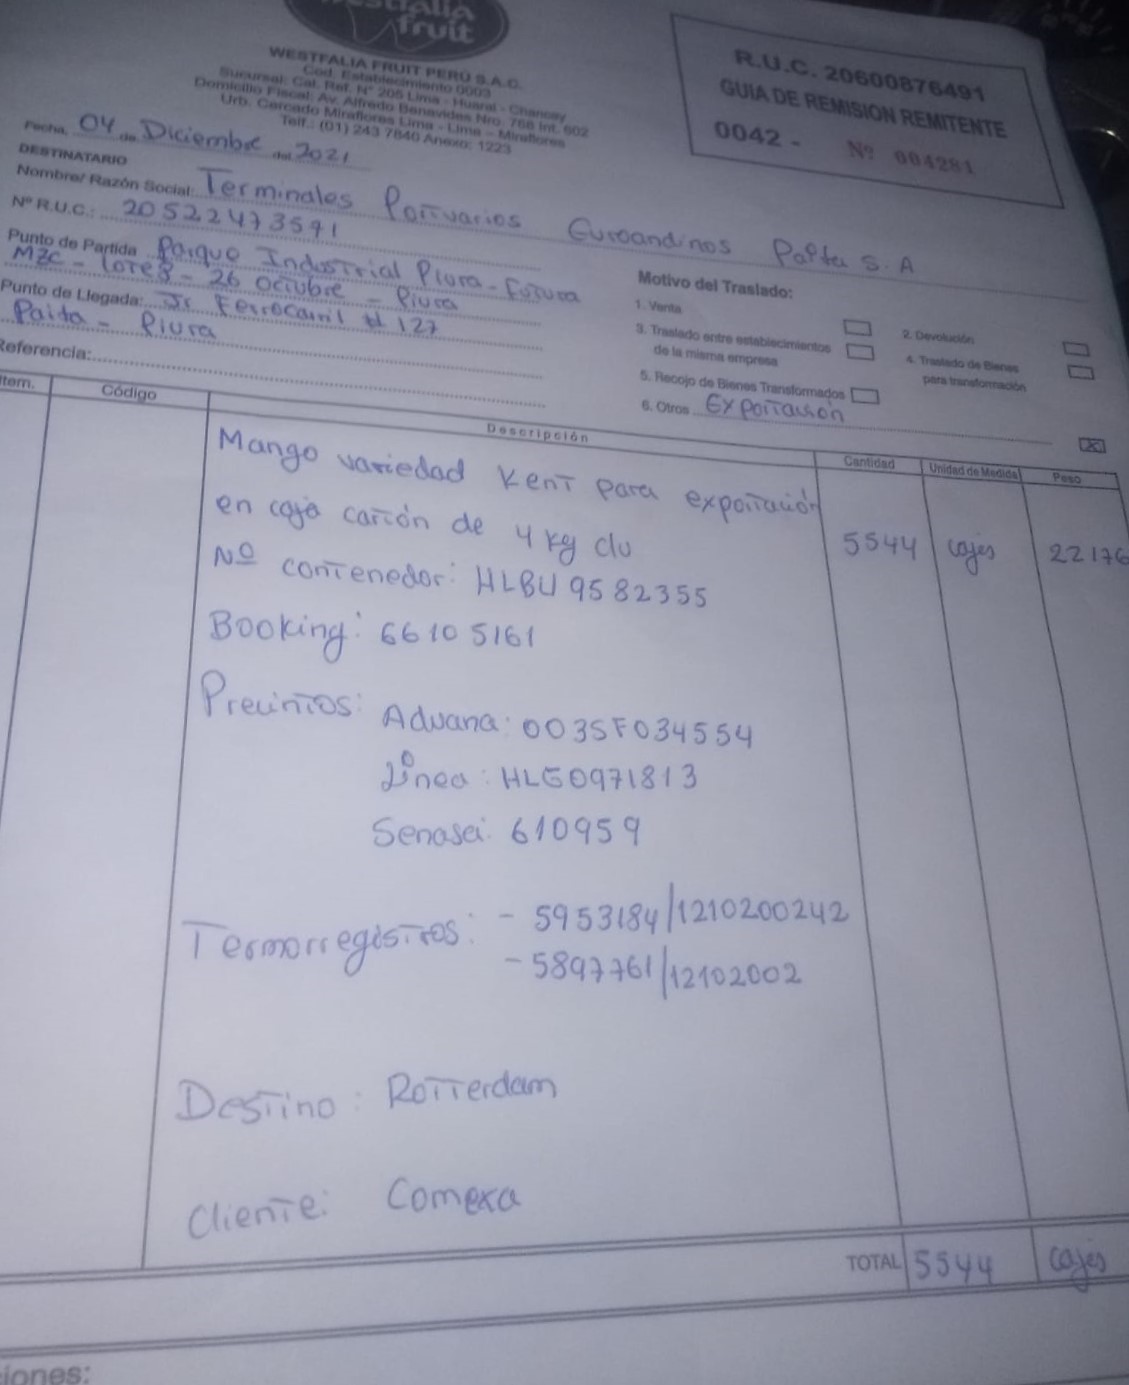 fruit
WESTFALIA FRUIT PERÚ S.A.C.
Cod. Establecimiento 0003
Sucursal: Cal. Ref. N° 205 Lima - Huaral - Chancay
Domicilio Fiscal: Av. Alfredo Benavides Nro. 768 Int. 602
Urb. Cercado Miraflores Lima - Lima - Miraflores
Telf.: (01) 243 7640 Anexo: 1223
R.U.C. 20600876491
GUIA DE REMISIÓN REMITENTE
0042 - Nº 004281
Fecha, 04 de Diciembre del 2021
DESTINATARIO
Nombre/ Razón Social: Terminales Portuarios Euroandinos Paita S.A
Nº R.U.C.: 20522473571
Punto de Partida Parque Industrial Piura - Futura
MZC - Lote 8 - 26 Octubre - Piura
Punto de Llegada: Jr Ferrocarril # 127
Paita - Piura
Referencia:
Motivo del Traslado:
1. Venta
2. Devolución
3. Traslado entre establecimientos
de la misma empresa
4. Traslado de Bienes
para transformación
5. Recojo de Bienes Transformados
6. Otros Exportación
Item. Código Descripción Cantidad Unidad de Medida Peso
Mango variedad Kent para exportación
en caja cartón de 4 kg c/u 5544 cajas 22176
Nº contenedor: HLBU 9582355
Booking: 66105161
Precintos: Aduana: 003SF034554
Línea: HLG0971813
Senasa: 610959
Termorregistros: - 5953184/1210200242
- 5897761/12102002
Destino: Rotterdam
Cliente: Comexa
TOTAL 5544 cajas
iones: